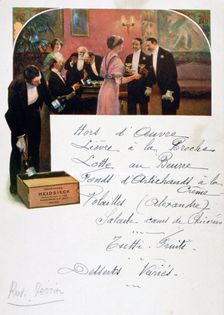 HEIDSIECK
Hors d'Œuvre
Lièvre à la Broche
Lotte au Beurre
Fonds d'Artichauts à la
Crème
Volailles (Alexandre)
Salade cœurs de Chicorée
Tutti-Fruiti
Desserts Variés